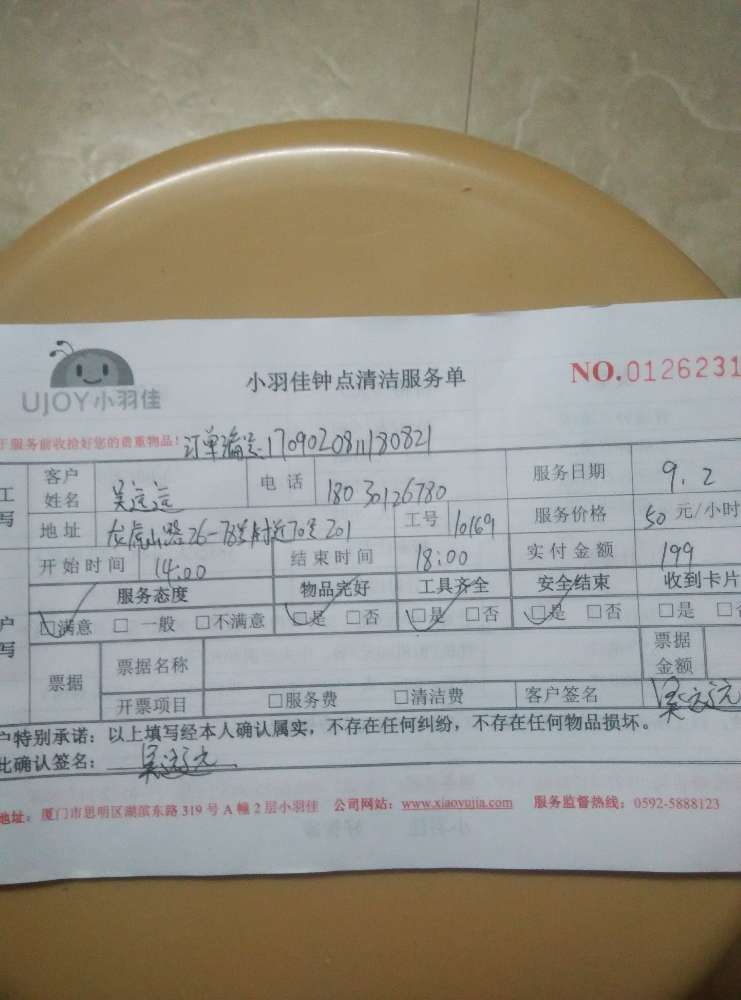 UJOY小羽佳
小羽佳钟点清洁服务单
NO.0126231
于服务前收拾好您的贵重物品！ 订单编号:170902081180821
工 客户姓名 电话 18030126780 服务日期 9.2
写 地址 龙虎山路26-78号附近70号201 工号 10169 服务价格 50 元/小时
开始时间 14:00 结束时间 18:00 实付金额 199
服务态度 物品完好 工具齐全 安全结束 收到卡片
户 写 □满意 □一般 □不满意 □是 □否 □是 □否 □是 □否 □是 □
票据 票据名称 票据金额
开票项目 □服务费 □清洁费 客户签名
户特别承诺：以上填写经本人确认属实，不存在任何纠纷，不存在任何物品损坏。
此确认签名：
地址：厦门市思明区湖滨东路 319 号 A 幢 2 层小羽佳 公司网站：www.xiaoyujia.com 服务监督热线：0592-5888123